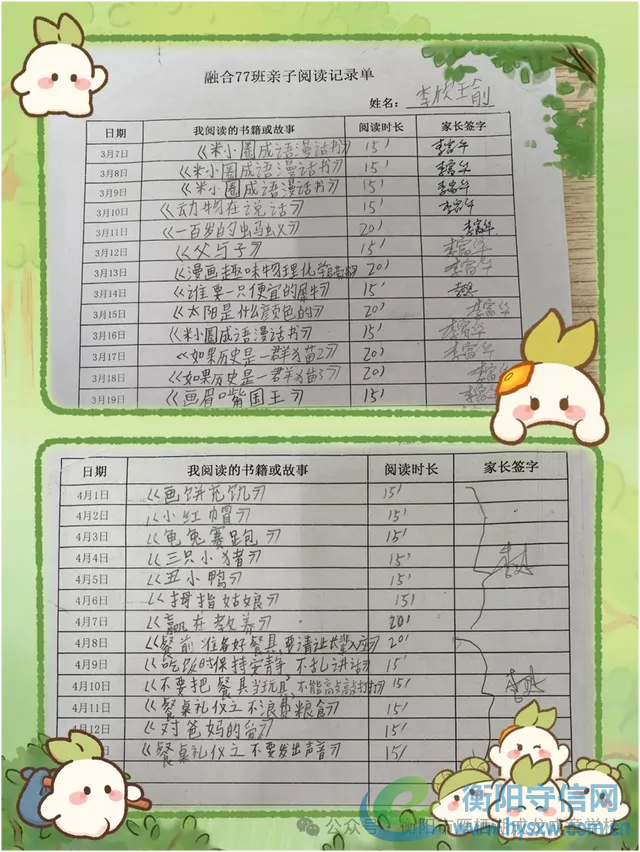 融合77班亲子阅读记录单
姓名：李欣玥
日期 我阅读的书籍或故事 阅读时长 家长签字
3月7日 《米小圈成语漫话书》 15′ 李富华
3月8日 《米小圈成语漫话书》 15′ 李富华
3月9日 《米小圈成语漫话书》 15′ 李富华
3月10日 《动物在说话》 15′ 李富华
3月11日 《一百岁的虫马虫义》 20′ 李富华
3月12日 《父与子》 15′ 李富华
3月13日 《漫画趣味物理化学 20′ 李富华
3月14日 《谁要一只便宜的犀牛》 15′
3月15日 《太阳是什么颜色的》 20′ 李富华
3月16日 《米小圈成语漫话书》 15′ 李富华
3月17日 《如果历史是一群猫2》 20′ 李富华
3月18日 《如果历史是一群猫3》 20′ 李富华
3月19日 《画眉嘴国王》 15′ 李富华
日期 我阅读的书籍或故事 阅读时长 家长签字
4月1日 《画饼充饥》 15′
4月2日 《小红帽》 15′
4月3日 《龟兔赛跑》 15′
4月4日 《三只小猪》 15′
4月5日 《丑小鸭》 15′
4月6日 《拇指姑娘》 15′
4月7日 《赢在教养》 20′
4月8日 《餐前准备好餐具要请让长辈入座》 20′
4月9日 《吃饭时保持安静 不乱讲话》 15′
4月10日 《不要把餐具当玩具，不能敲敲打打》 15′
4月11日 《餐桌礼仪之不浪费粮食》 15′
4月12日 《对爸妈的爱》 15′
《餐桌礼仪之不要发出声音》 15′
衡阳守信网
www.hysxw.com
公众号 衡阳市雁栖湖成龙成章学校